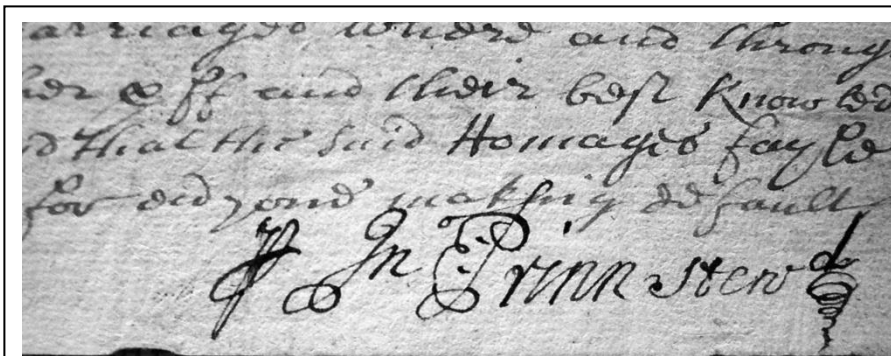 arriages where and throug
her & ff and their best Knowled
d that the said Homages fayle
for making default
Jn Prinn Stewd